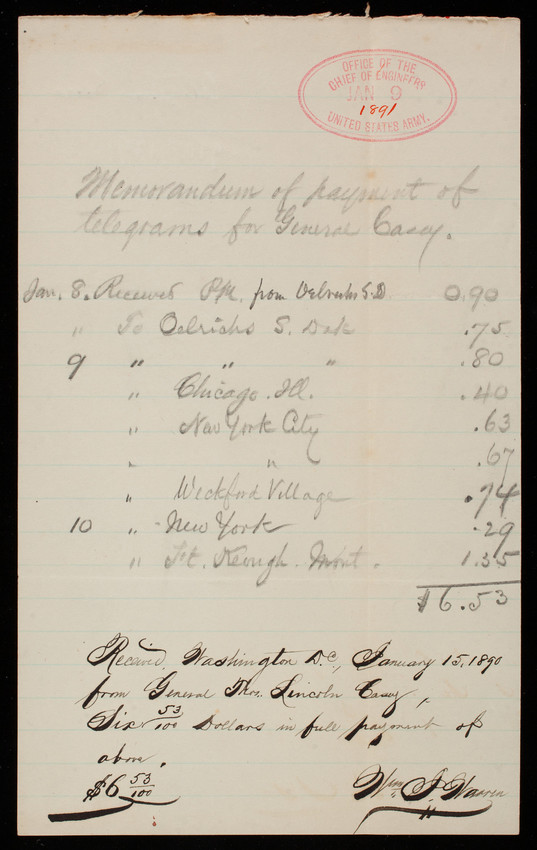 OFFICE OF THE
CHIEF OF ENGINEERS
JAN 9
1891
UNITED STATES ARMY.
Memorandum of payment of
telegrams for General Casey.
Jan. 8. Received P.M. from Oelrichs S.D. 0.90
" To Oelrichs S. Dak .75
9 " " " .80
" Chicago. Ill. .40
" New York City .63
" " .67
" Wickford Village .74
10 " New York .29
" Ft. Keough. Mont. 1.35
$6.53
Received, Washington D.C., January 15, 1890
from General Thos. Lincoln Casey,
Six 53/100 Dollars in full payment of
above.
$6 53/100 Wm. J. Warren